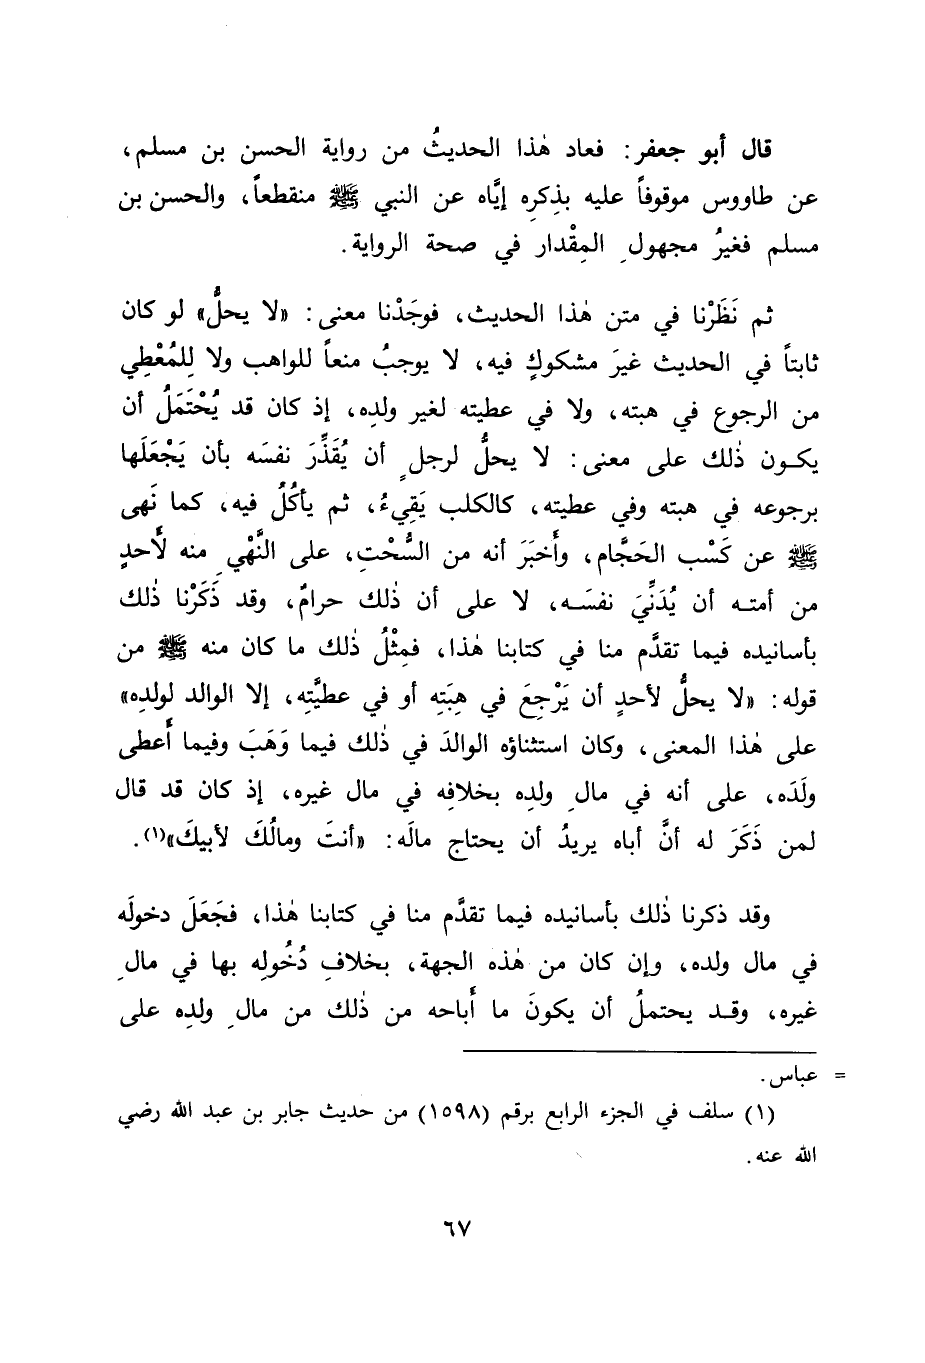 قال أبو جعفر: فعاد هٰذا الحديثُ من رواية الحسن بن مسلم،
عن طاووس موقوفاً عليه بذِكرِه إيَّاه عن النبي ﷺ منقطعاً، والحسن بن
مسلم فغيرُ مجهولِ المِقْدار في صحة الرواية.
ثم نَظَرْنا في متن هٰذا الحديث، فوجَدْنا معنى: «لا يحلُّ» لو كان
ثابتاً في الحديث غيرَ مشكوكٍ فيه، لا يوجبُ منعاً للواهب ولا لِلمُعْطِي
من الرجوع في هبته، ولا في عطيته لغير ولده، إذ كان قد يُحْتَمَلُ أن
يكون ذٰلك على معنى: لا يحلُّ لرجلٍ أن يُقَذِّرَ نفسَه بأن يَجْعَلَها
برجوعه في هبته وفي عطيته، كالكلب يَقِيءُ، ثم يأكُلُ فيه، كما نَهى
ﷺ عن كَسْب الحَجَّام، وأَخبَرَ أنه من السُّحْتِ، على النَّهْيِ منه لأَحدٍ
من أمته أن يُدَنِّيَ نفسَه، لا على أن ذٰلك حرامٌ، وقد ذَكَرْنا ذٰلك
بأسانيده فيما تقدَّم منا في كتابنا هٰذا، فمِثْلُ ذٰلك ما كان منه ﷺ من
قوله: «لا يحلُّ لأحدٍ أن يَرْجِعَ في هِبَتِه أو في عطيَّتِه، إلا الوالد لولدِه»
على هٰذا المعنى، وكان استثناؤه الوالدَ في ذٰلك فيما وَهَبَ وفيما أَعطى
ولَدَه، على أنه في مالِ ولدِه بخلافِه في مال غيره، إذ كان قد قال
لمن ذَكَرَ له أنَّ أباه يريدُ أن يحتاج مالَه: «أنتَ ومالُكَ لأبيكَ»(١).
وقد ذكرنا ذٰلك بأسانيده فيما تقدَّم منا في كتابنا هٰذا، فجَعَلَ دخولَه
في مال ولده، وإن كان من هٰذه الجهة، بخلافِ دُخُولِه بها في مالِ
غيره، وقد يحتملُ أن يكونَ ما أَباحه من ذٰلك من مالِ ولدِه على
= عباس.
(١) سلف في الجزء الرابع برقم (١٥٩٨) من حديث جابر بن عبد الله رضي
الله عنه.
٦٧